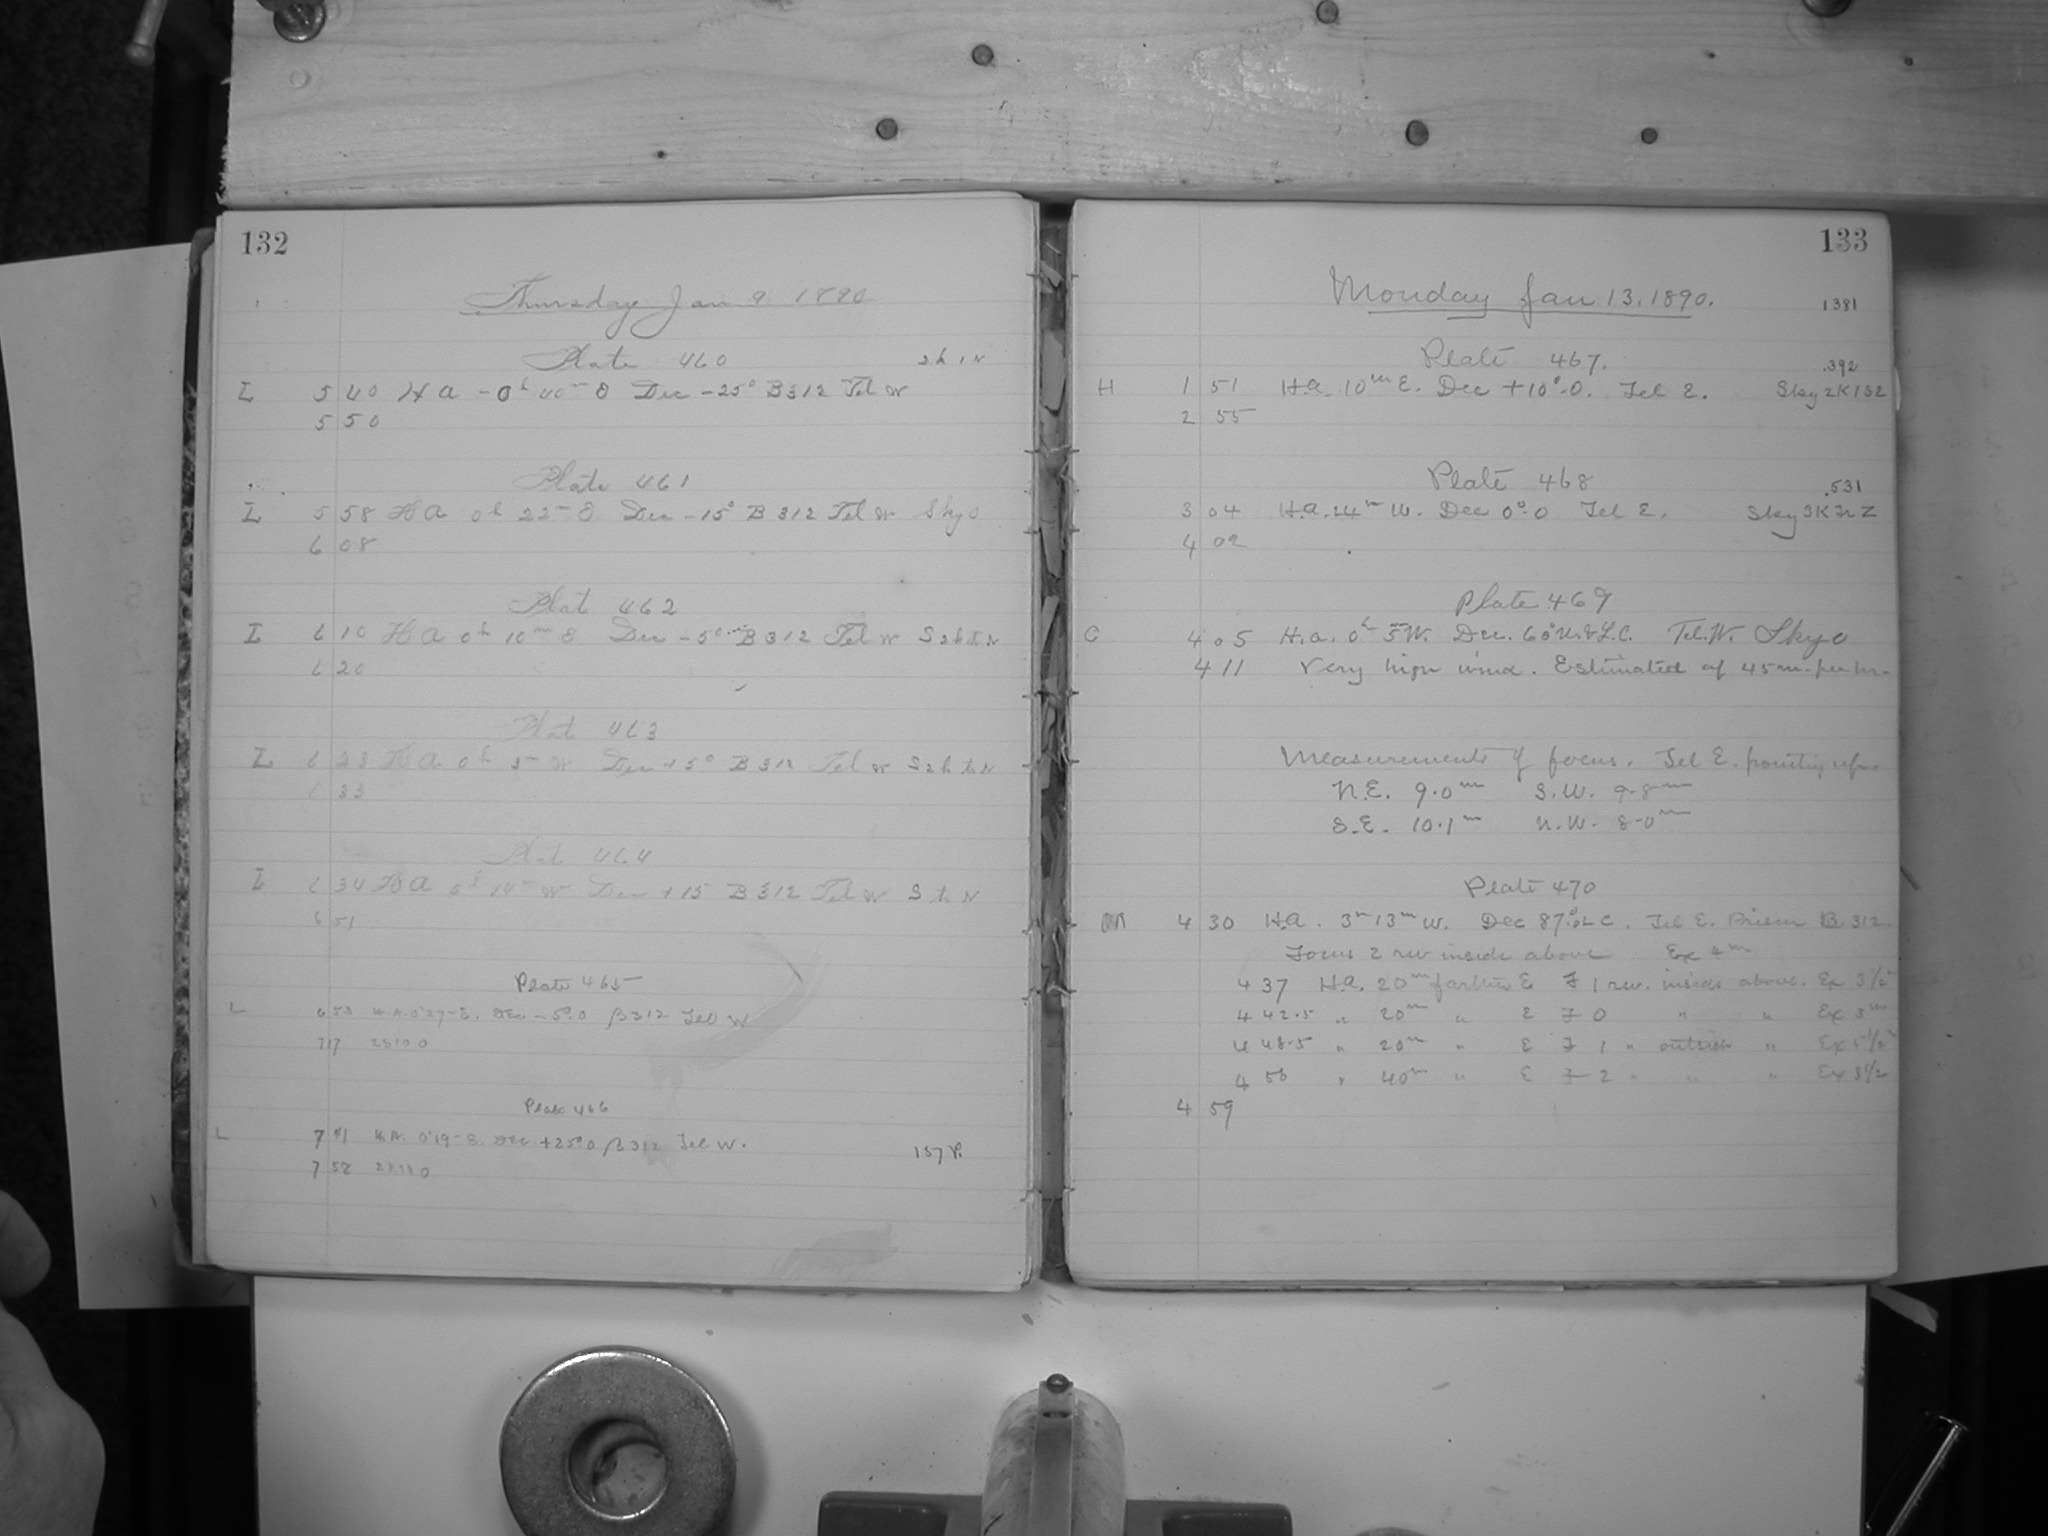 132
Thursday Jan 9 1890
Plate 460
L 5 40 H A - 0h 40m E Dec - 25° B 312 Tel W
5 50
Plate 461
L 5 58 H A 0h 22m E Dec - 15° B 312 Tel W Sky 0
6 08
Plate 462
L 6 10 H A 0h 10m E Dec - 5° B 312 Tel W
6 20
Plate 463
L 6 23 H A 0h 3m W Dec + 5° B 312 Tel W
6 33
Plate 464
L 6 34 H A 0h 14m W Dec + 15 B 312 Tel W
6 51
Plate 465
L 6 53 H.A. 0h27m E. Dec - 5°.0 β312 Tel W
7 17
Plate 466
L 7 H.A. 0h19m E. Dec. +25°.0 β312 Tel W.
7 52
133
Monday Jan 13. 1890.
1381
Plate 467.
.392
H 1 51 H.a. 10m E. Dec +10°.0. Tel E. Sky 2K1S2
2 55
Plate 468
.531
3 04 H.a. 24m W. Dec 0°.0 Tel E. Sky
4 02
Plate 469
C 4 05 H.a. 0h 5m W. Dec. 60° Tel. W. Sky 0
4 11 Very high wind. Estimated at 45 m. per hr.
Measurements of focus. Tel E. pointing
N.E. 9.0m S.W. 9.8m
S.E. 10.1m N.W. 8.0m
Plate 470
4 30 H.a. 3h 13m W. Dec 87°.0 L C. Tel E. Prism B. 312
Focus 2 rev inside above Ex 4m
4 37 H.a. 20m farther E F 1 rev. inside above. Ex 3 1/2m
4 42.5 " 20m " E F 0 " " Ex 3m
4 48.5 " 20m " E F 1 " outside " Ex 5 1/2m
4 55 " 40m " E F 2 " " " Ex 3 1/2
4 59